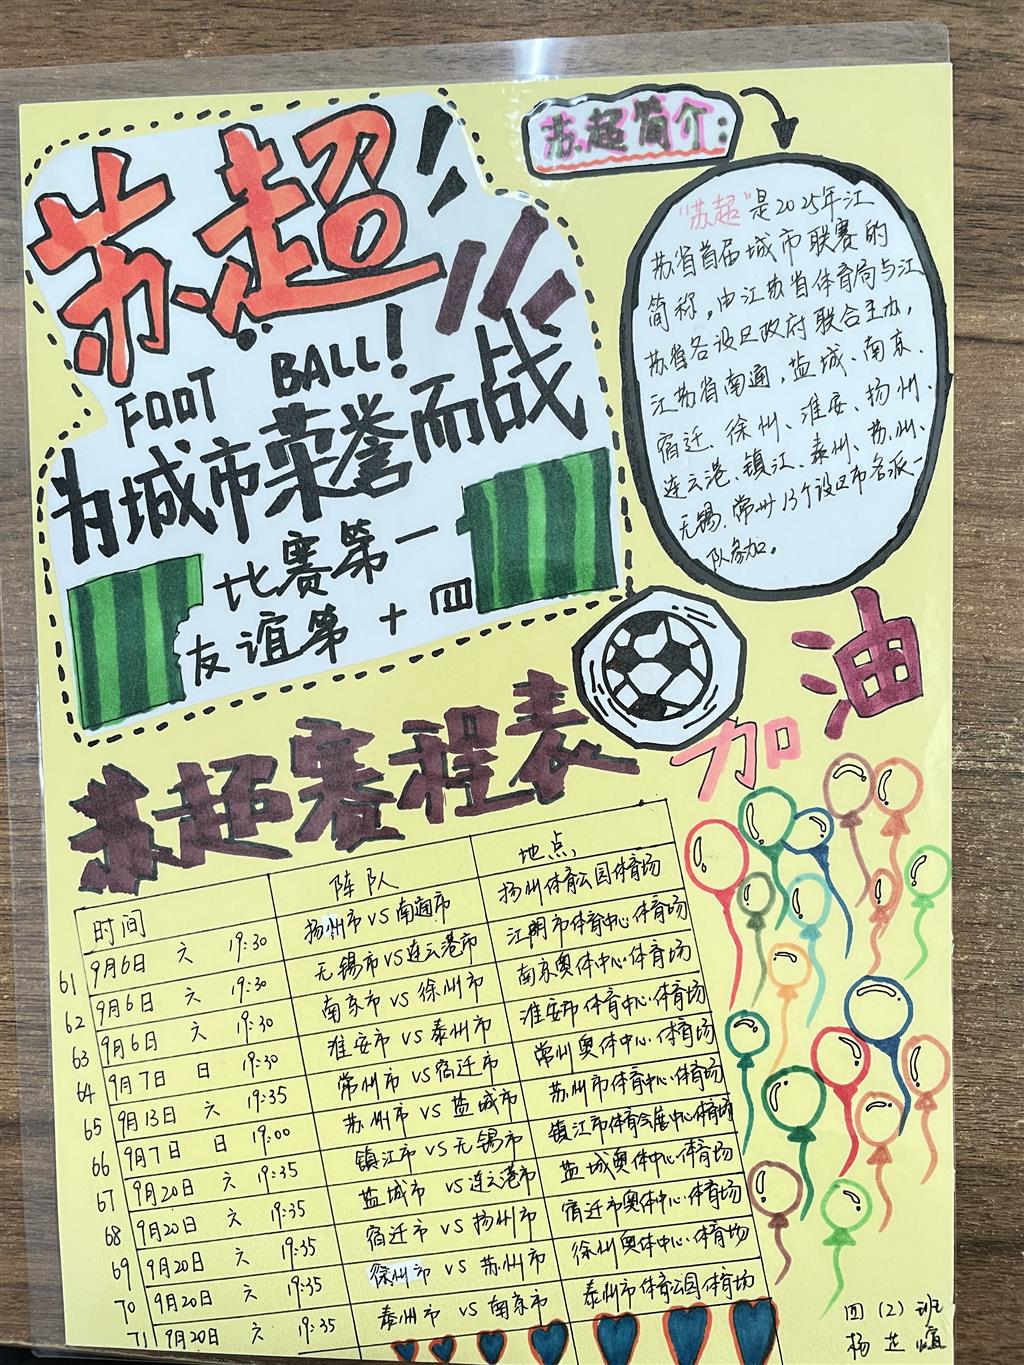 苏超
FOOT BALL!
为城市荣誉而战
比赛第一
友谊第十四
苏超简介:
“苏超”是2025年江
苏省首届城市联赛的
简称,由江苏省体育局与江
苏省各设区政府联合主办,
江苏省南通、盐城、南京、
宿迁、徐州、淮安、扬州、
连云港、镇江、泰州、苏州、
无锡、常州13个设区市各派一
队参加。
加油
苏超赛程表
时间 阵队 地点
61 9月6日 六 19:30 扬州市 VS 南通市 扬州体育公园体育场
62 9月6日 六 19:30 无锡市 VS 连云港市 江阴市体育中心·体育场
63 9月6日 六 19:30 南京市 VS 徐州市 南京奥体中心·体育场
64 9月7日 日 19:30 淮安市 VS 泰州市 淮安市体育中心·体育场
65 9月13日 六 19:35 常州市 VS 宿迁市 常州奥体中心·体育场
66 9月7日 日 19:00 苏州市 VS 盐城市 苏州市体育中心·体育场
67 9月20日 六 19:35 镇江市 VS 无锡市 镇江市体育会展中心体育场
68 9月20日 六 19:35 盐城市 VS 连云港市 盐城奥体中心·体育场
69 9月20日 六 19:35 宿迁市 VS 扬州市 宿迁市奥体中心·体育场
70 9月20日 六 19:35 徐州市 VS 苏州市 徐州奥体中心·体育场
71 9月20日 六 19:35 泰州市 VS 南京市 泰州市体育公园体育场
四(2)班
杨芷煊